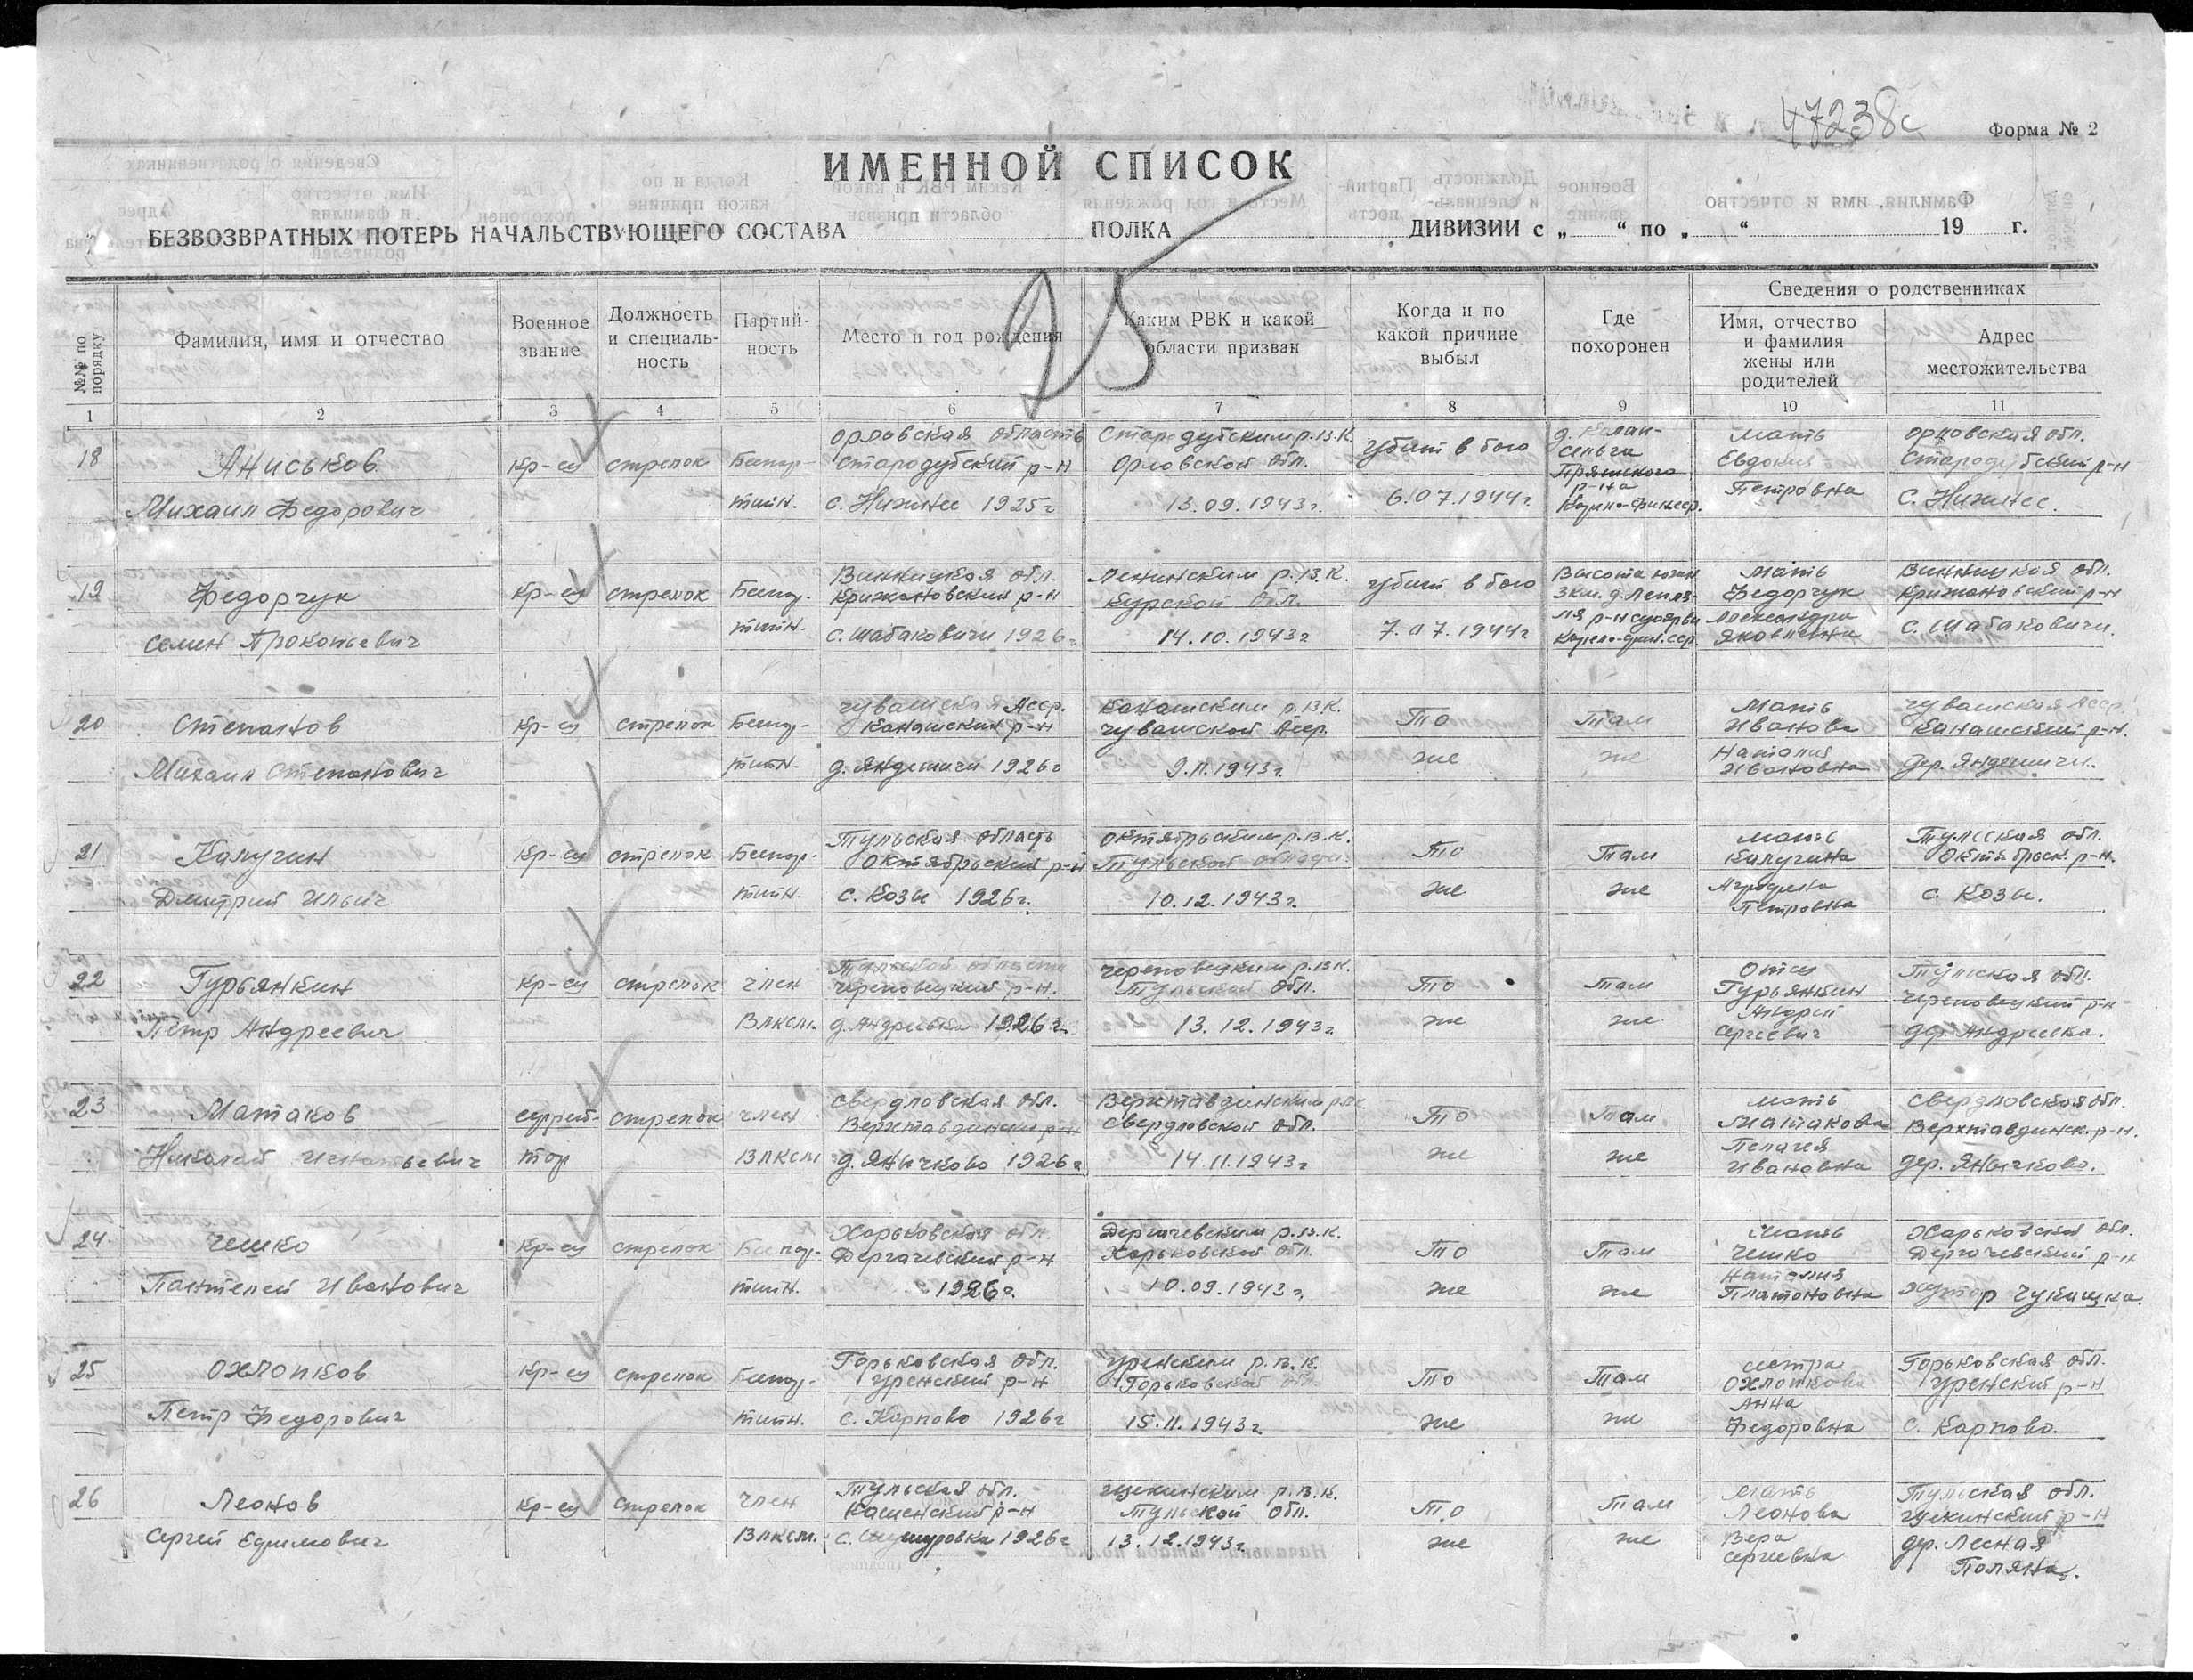 47238с
Форма № 2
ИМЕННОЙ СПИСОК
БЕЗВОЗВРАТНЫХ ПОТЕРЬ НАЧАЛЬСТВУЮЩЕГО СОСТАВА ПОЛКА ДИВИЗИИ с „ “ по „ “ 19 г.
25
№№ по порядку
Фамилия, имя и отчество
Военное звание
Должность и специальность
Партийность
Место и год рождения
Каким РВК и какой области призван
Когда и по какой причине выбыл
Где похоронен
Сведения о родственниках
Имя, отчество и фамилия жены или родителей
Адрес местожительства
1 2 3 4 5 6 7 8 9 10 11
18 Аниськов Михаил Федорович
кр-ец стрелок Беспартийн.
Орловская область Стародубский р-н с. Нижнее 1925г
Стародубским р.в.к. Орловской обл. 13.09.1943г.
убит в бою 6.07.1944г.
д. сельга Пряжского р-на
Мать Евдокия Петровна
Орловская обл. Стародубский р-н с. Нижнее.
19 Федорчук Семен Прокопьевич
кр-ец стрелок Беспартийн.
Винницкая обл. Крижановский р-н с. Шабаковичи 1926г
Ленинским р.в.к. Курской обл. 14.10.1943г
убит в бою 7.07.1944г
Высота южн 3 км. д.
Мать Федорчук Александра Яковлевна
Винницкая обл. Крижановский р-н с. Шабаковичи.
20 Степанов Михаил Степанович
кр-ец стрелок Беспартийн.
Чувашская Асср. Канашский р-н д. Яндешичи 1926г
Канашским р.в.к. Чувашской Асср. 9.11.1943г.
То же
Там же
Мать Иванова Наталия Ивановна
Чувашская Асср. Канашский р-н. Дер. Яндешичи.
21 Калугин Дмитрий Ильич
кр-ец стрелок Беспартийн.
Тульская область Октябрьский р-н с. Козы 1926г.
Октябрьским р.в.к. Тульской области. 10.12.1943г.
То же
Там же
мать Калугина Петровна
Тульская обл. Октябрьск. р-н. с. Козы.
22 Гурьянкин Петр Андреевич
кр-ец стрелок член Влксм.
Тульской области Череповецкий р-н. д. Андреевка 1926г.
Череповецким р.в.к. Тульской обл. 13.12.1943г
То же
там же
Отец Гурьянкин Андрей Сергеевич
Тульская обл. Череповецкий р-н дер. Андреевка.
23 Матаков Николай Игнатьевич
ефрейтор стрелок член Влксм
Свердловская обл. Верхтавдински р-н д. Янычково 1926г
Верхтавдинским рвк Свердловской обл. 14.11.1943г
То же
там же
мать Матакова Пелагея Ивановна
Свердловская обл. Верхтавдинск. р-н. дер. Янычково.
24 Чешко Пантелей Иванович
кр-ец стрелок Беспартийн.
Харьковская обл. Дергачевский р-н 1926г.
Дергачевским р.в.к. Харьковской обл. 10.09.1943г.
То же
Там же
Мать Чешко Наталия Платоновна
Харьковской обл. Дергачевский р-н хутор
25 Охлопков Петр Федорович
кр-ец стрелок Беспартийн.
Горьковская обл. Уренский р-н с. Карпово 1926г
Уренским р.в.к. Горьковской обл. 15.11.1943г
То же
Там же
сестра Охлопкова Анна Федоровна
Горьковская обл. Уренский р-н с. Карпово.
26 Леонов Сергей Ефимович
кр-ец стрелок член Влксм.
Тульская обл. р-н 1926г
Щекинским р.в.к. Тульской обл. 13.12.1943г.
То же
Там же
Мать Леонова Вера Сергеевна
Тульская обл. Щекинский р-н дер. Лесная Поляна.